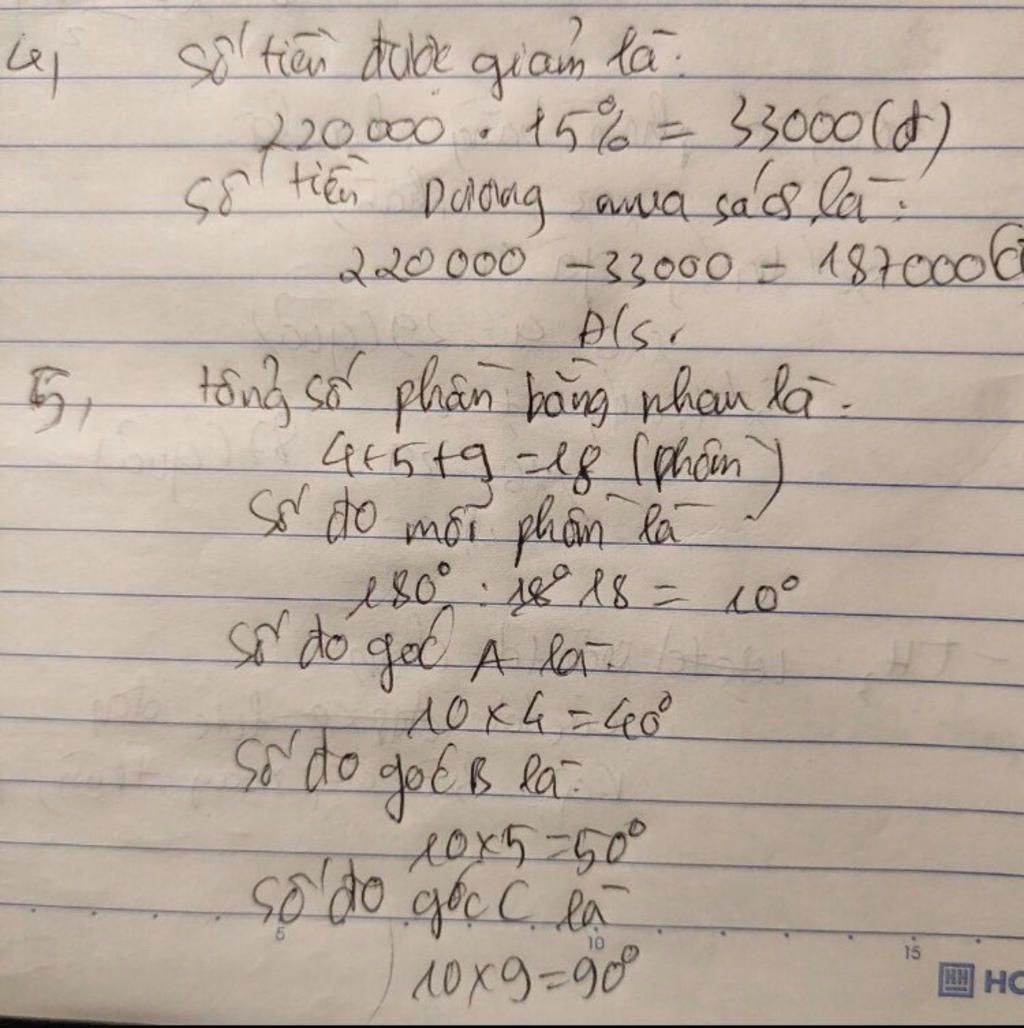 4, Số tiền được giảm là:
220000 . 15% = 33000 (đ)
Số tiền Dương mua sách là:
220000 - 33000 = 187000 (đ
Đ/s.
5, tổng số phần bằng nhau là:
4+5+9 = 18 (phần)
Số đo mỗi phần là
180° : 18° 18 = 10°
Số đo góc A là:
10 x 4 = 40°
Số đo góc B là:
10x5 = 50°
Số đo góc C là
5 10 15
10x9 = 90°
HH HO